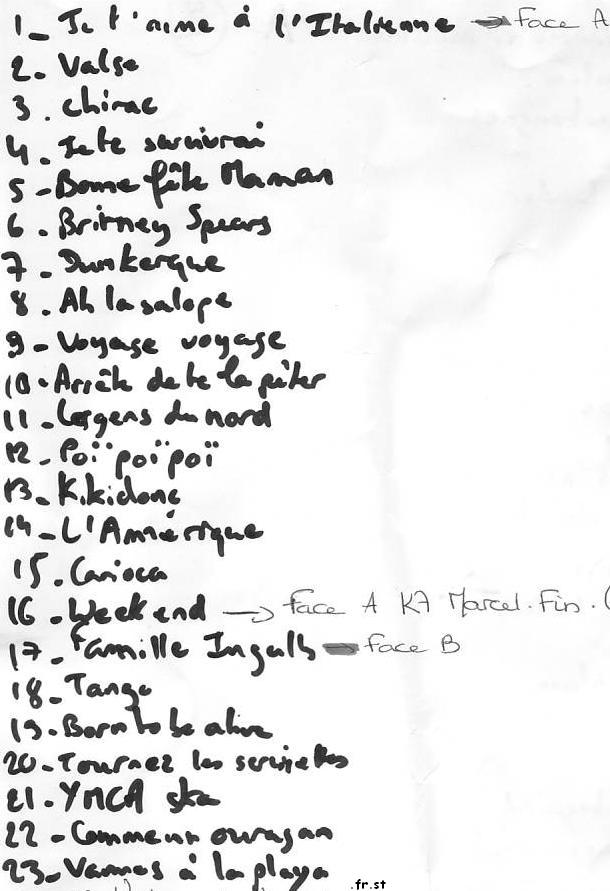 1_ Je t'aime à l'Italienne → Face A
2. Valse
3. Chirac
4. Je te survivrai
5 - Bonne fête Maman
6. Britney Spears
7 - Dunkerque
8. Ah la salope
9 - Voyage voyage
10. Arrête de te la péter
11. Les gens du nord
12. Poï poï poï
13. Kikidonc
14 - L'Amérique
15. Carioca
16. Week end → Face A K7 Marcel. Fin. (
17_ Famille Ingalls → Face B
18_ Tango
19. Born to be alive
20. Tournez les serviettes
21. YMCA ska
22 - Comme un ouragan
23 - Vamos à la playa
.fr.st